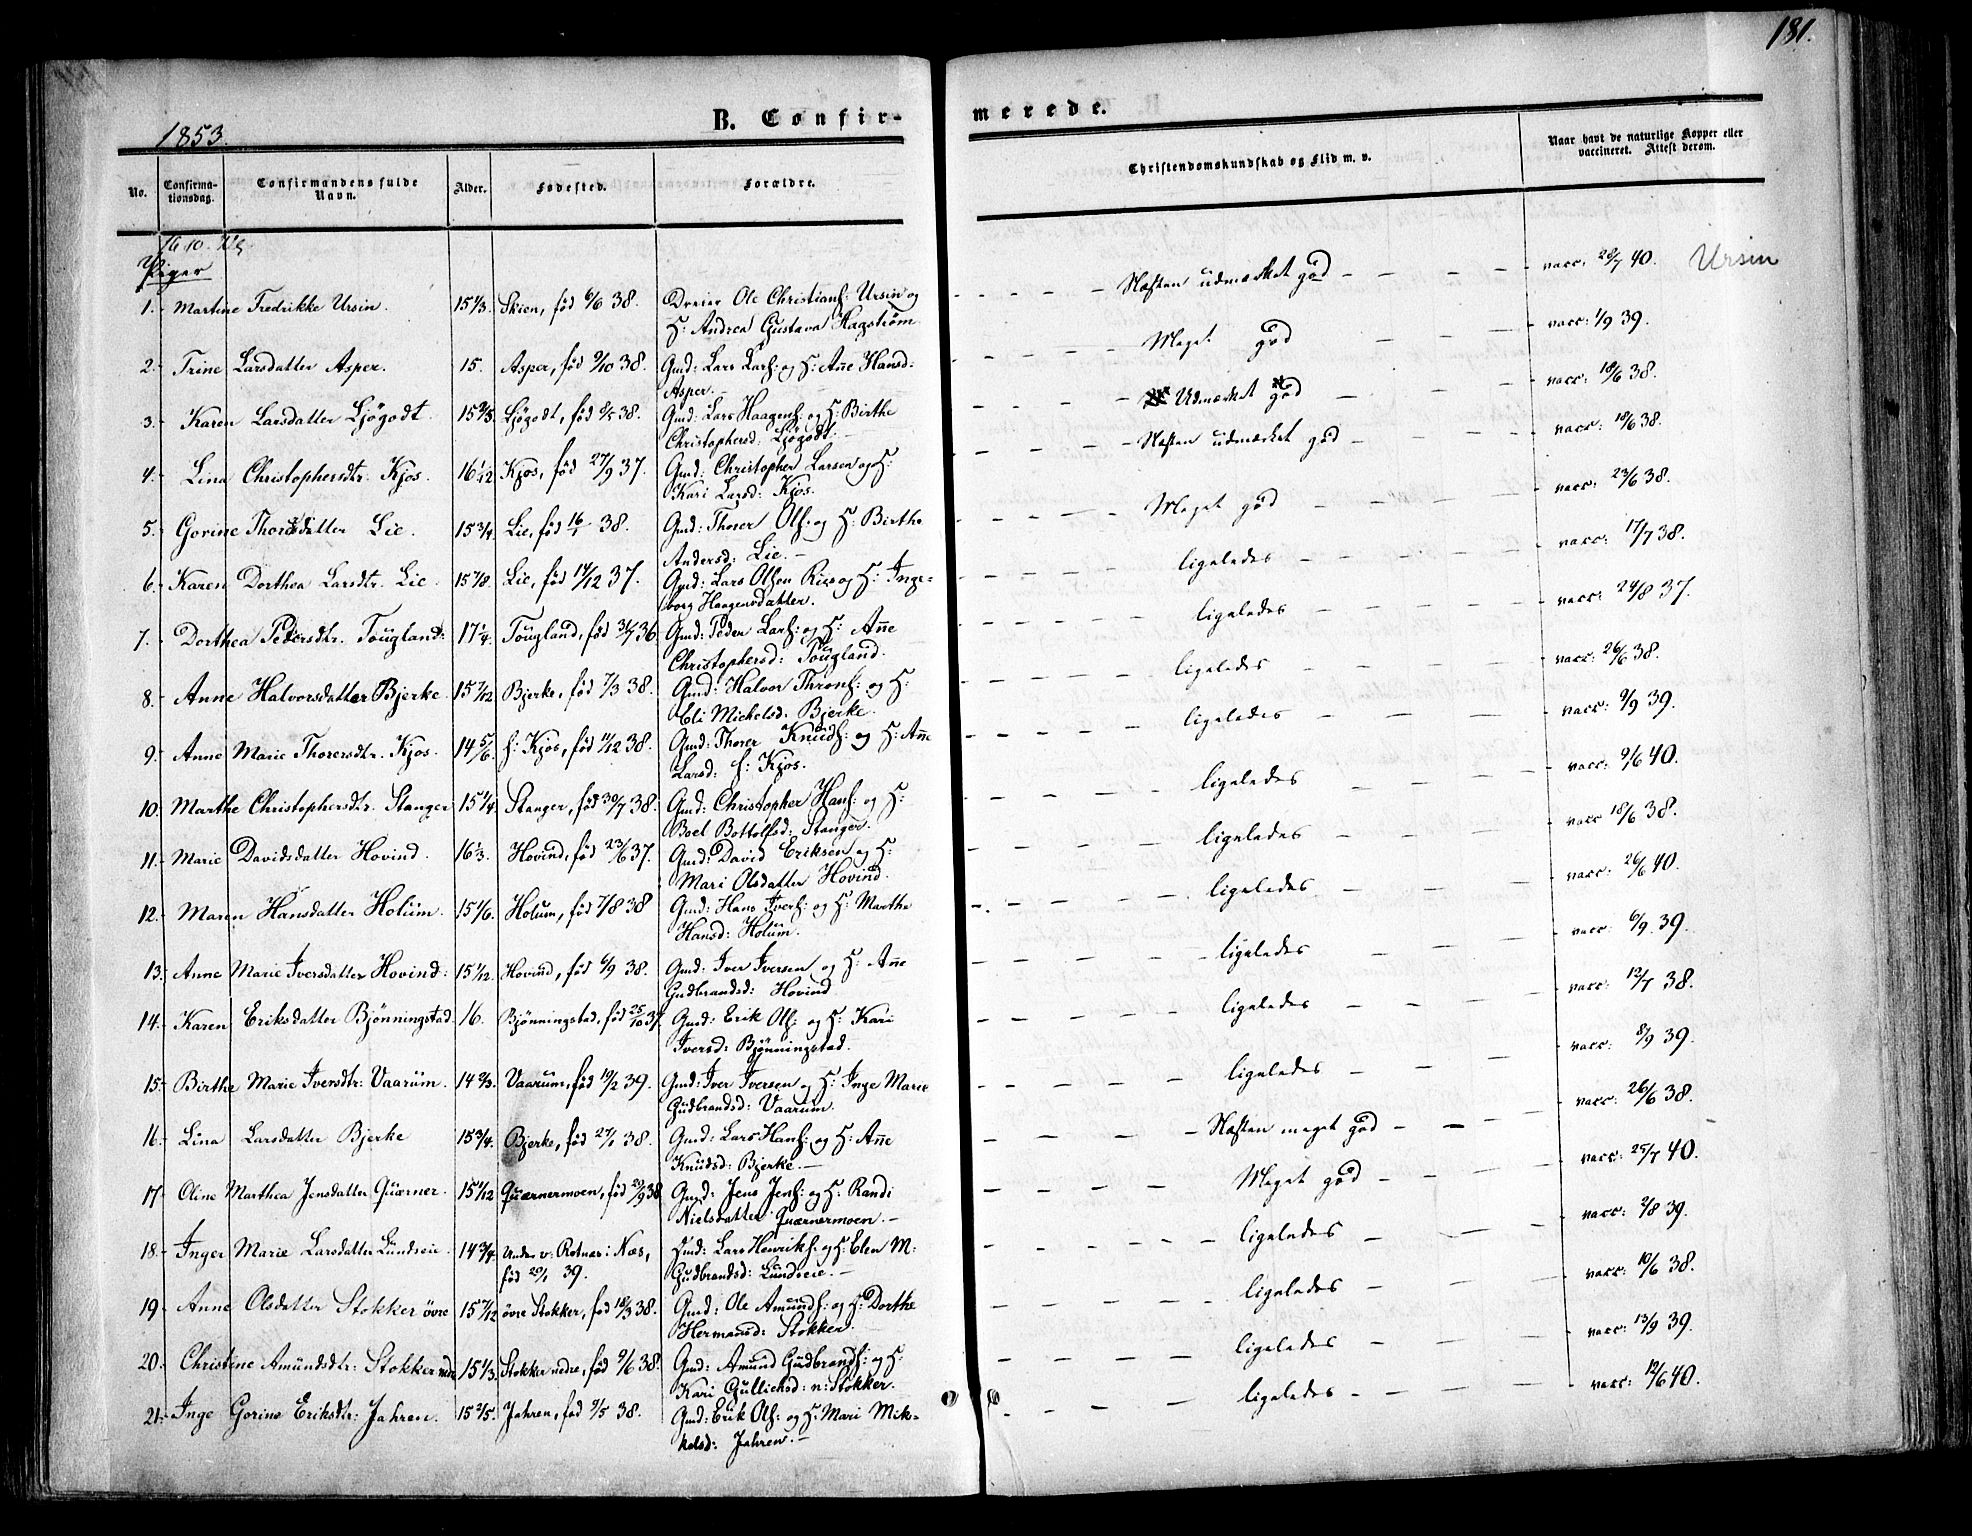 181.
B. Confirmerede.
1853.
No. Confirmationsdag. Confirmandens fulde Navn. Alder. Fødested. Forældre. Christendomskundskab og Flid m. v. Naar havt de naturlige Kopper eller vaccineret. Attest derom.
16/10
Piger
1. Martine Fredrikke Ursin. 15 1/3. Skien, fød 6/6 38. Dreier Ole Christians: Ursin og H: Andrea Gustava Hagstrøm Næsten udmærket god vacc: 28/7 40. Ursin
2. Trine Larsdatter Asper. 15. Asper, fød 9/10 38. Gmd: Lars Lars: og H: Añe Hansd: Asper. Meget god vacc: 1/9 39.
3. Karen Larsdatter Ljøgodt. 15 2/5. Ljøgodt, fød 38. Gmd: Lars Haagens: og H: Birthe Christophersd: Ljøgodt. Udmærket god vacc: 18/6 38.
4. Lina Christophersdtr. Kjos. 16 1/12 Kjos, fød 27/9 37. Gmd: Christopher Larsen og H: Kari Larsd: Kjos. Næsten udmærket god vacc: 18/6 38.
5. Gorine Thorsdatter Lie. 15 3/4. Lie, fød 16/1 38. Gmd: Thorer Ols: og H: Birthe Andersd: Lie. Meget god vacc: 23/6 38.
6. Karen Dorthea Larsdtr. Lie. 15 7/8. Lie, fød 14/12 37. Gmd: Lars Olsen Riis og H: Ingeborg Haagensdatter. ligeledes vacc: 17/7 38.
7. Dorthea Pedersdtr. Tougland: 17 1/4. Tougland, fød 31/7 36 Gmd: Peder Lars: og H: Añe Christophersd: Tougland. ligeledes vacc: 24/8 37.
8. Anne Halvorsdatter Bjerke. 15 7/12 Bjerke, fød 7/3 38. Gmd: Halvor Throns: og H: Eli Michelsd: Bjerke. ligeledes vacc: 26/6 38.
9. Anne Marie Thorersdtr. Kjos. 14 5/6. f: Kjos, fød 11/12 38. Gmd: Thorer Knuds: og H: Añe Larsd: f: Kjos. ligeledes vacc: 9/9 39.
10. Marthe Christophersdtr. Stanger 15 1/4. Stanger, fød 30/7 38. Gmd: Christopher Hans: og H: Boel Bottolfsd: Stanger. ligeledes vacc: 9/6 40.
11. Marie Davidsdatter Hovind. 16 1/3. Hovind, fød 23/6 37. Gmd: David Eriksen og H: Mari Olsdatter Hovind. ligeledes vacc 18/6 38.
12. Maren Hansdatter Holum. 15 1/6. Holum, fød 7/8 38 Gmd: Hans Ivers: og H: Marthe Hansd: Holum. ligeledes vacc: 26/6 40.
13. Anne Marie Iversdatter Hovind: 15 1/12. Hovind, fød 6/9 38. Gmd: Iver Iversen og H: Añe Gudbrandsd: Hovind ligeledes vacc: 6/9 39.
14. Karen Eriksdatter Bjønningstad. 16. Bjønningstad, fød 25/10 37. Gmd: Erik Ols: og H: Kari Iversd: Bjønningstad. ligeledes vacc: 12/7 38.
15. Birthe Marie Iversdtr: Vaarum. 14 2/3. Vaarum, fød 19/2 39. Gmd: Iver Iversen og H: Inge Marie Gudbrandsd: Vaarum. ligeledes vacc: 8/9 39.
16. Lina Larsdatter Bjerke 15 3/4. Bjerke, fød 27/1 38. Gmd: Lars Hans: og H: Añe Knudsd: Bjerke. Næsten meget god vacc: 26/6 38.
17. Oline Marthea Jensdatter Quærner. 15 1/12 Quærnermoen, fød 29/9 38 Gmd: Jens Jens: og H: Randi Nielsdatter Quærnermoen. Meget god vacc: 25/7 40.
18. Inger Marie Larsdatter Lundseie. 14 3/4. Under v: Rotnæs i Næs, fød 20/1 39. Hmd: Lars Henriks: og H: Elen M: Gudbrandsd: Lundseie. ligeledes vacc: 2/8 39.
19. Anne Olsdatter Stokker øvre 15 7/12 øvre Stokker, fød 18/3 38. Gmd: Ole Amunds: og H: Dorthe Hermansd: Stokker. ligeledes vacc: 10/6 38.
20. Christine Amundsdtr: Stokker nedre 15 1/3. Stokker nedre, fød 9/6 38. Gmd: Amund Gudbrands: og H: Kari Gullichsd: n: Stokker. ligeledes vacc: 13/9 39.
21. Inge Gorine Eriksdtr: Jahren. 15 2/5. Jahren, fød 9/5 38. Gmd: Erik Ols: og H: Mari Mikkelsd: Jahren. ligeledes vacc: 12/6 40.